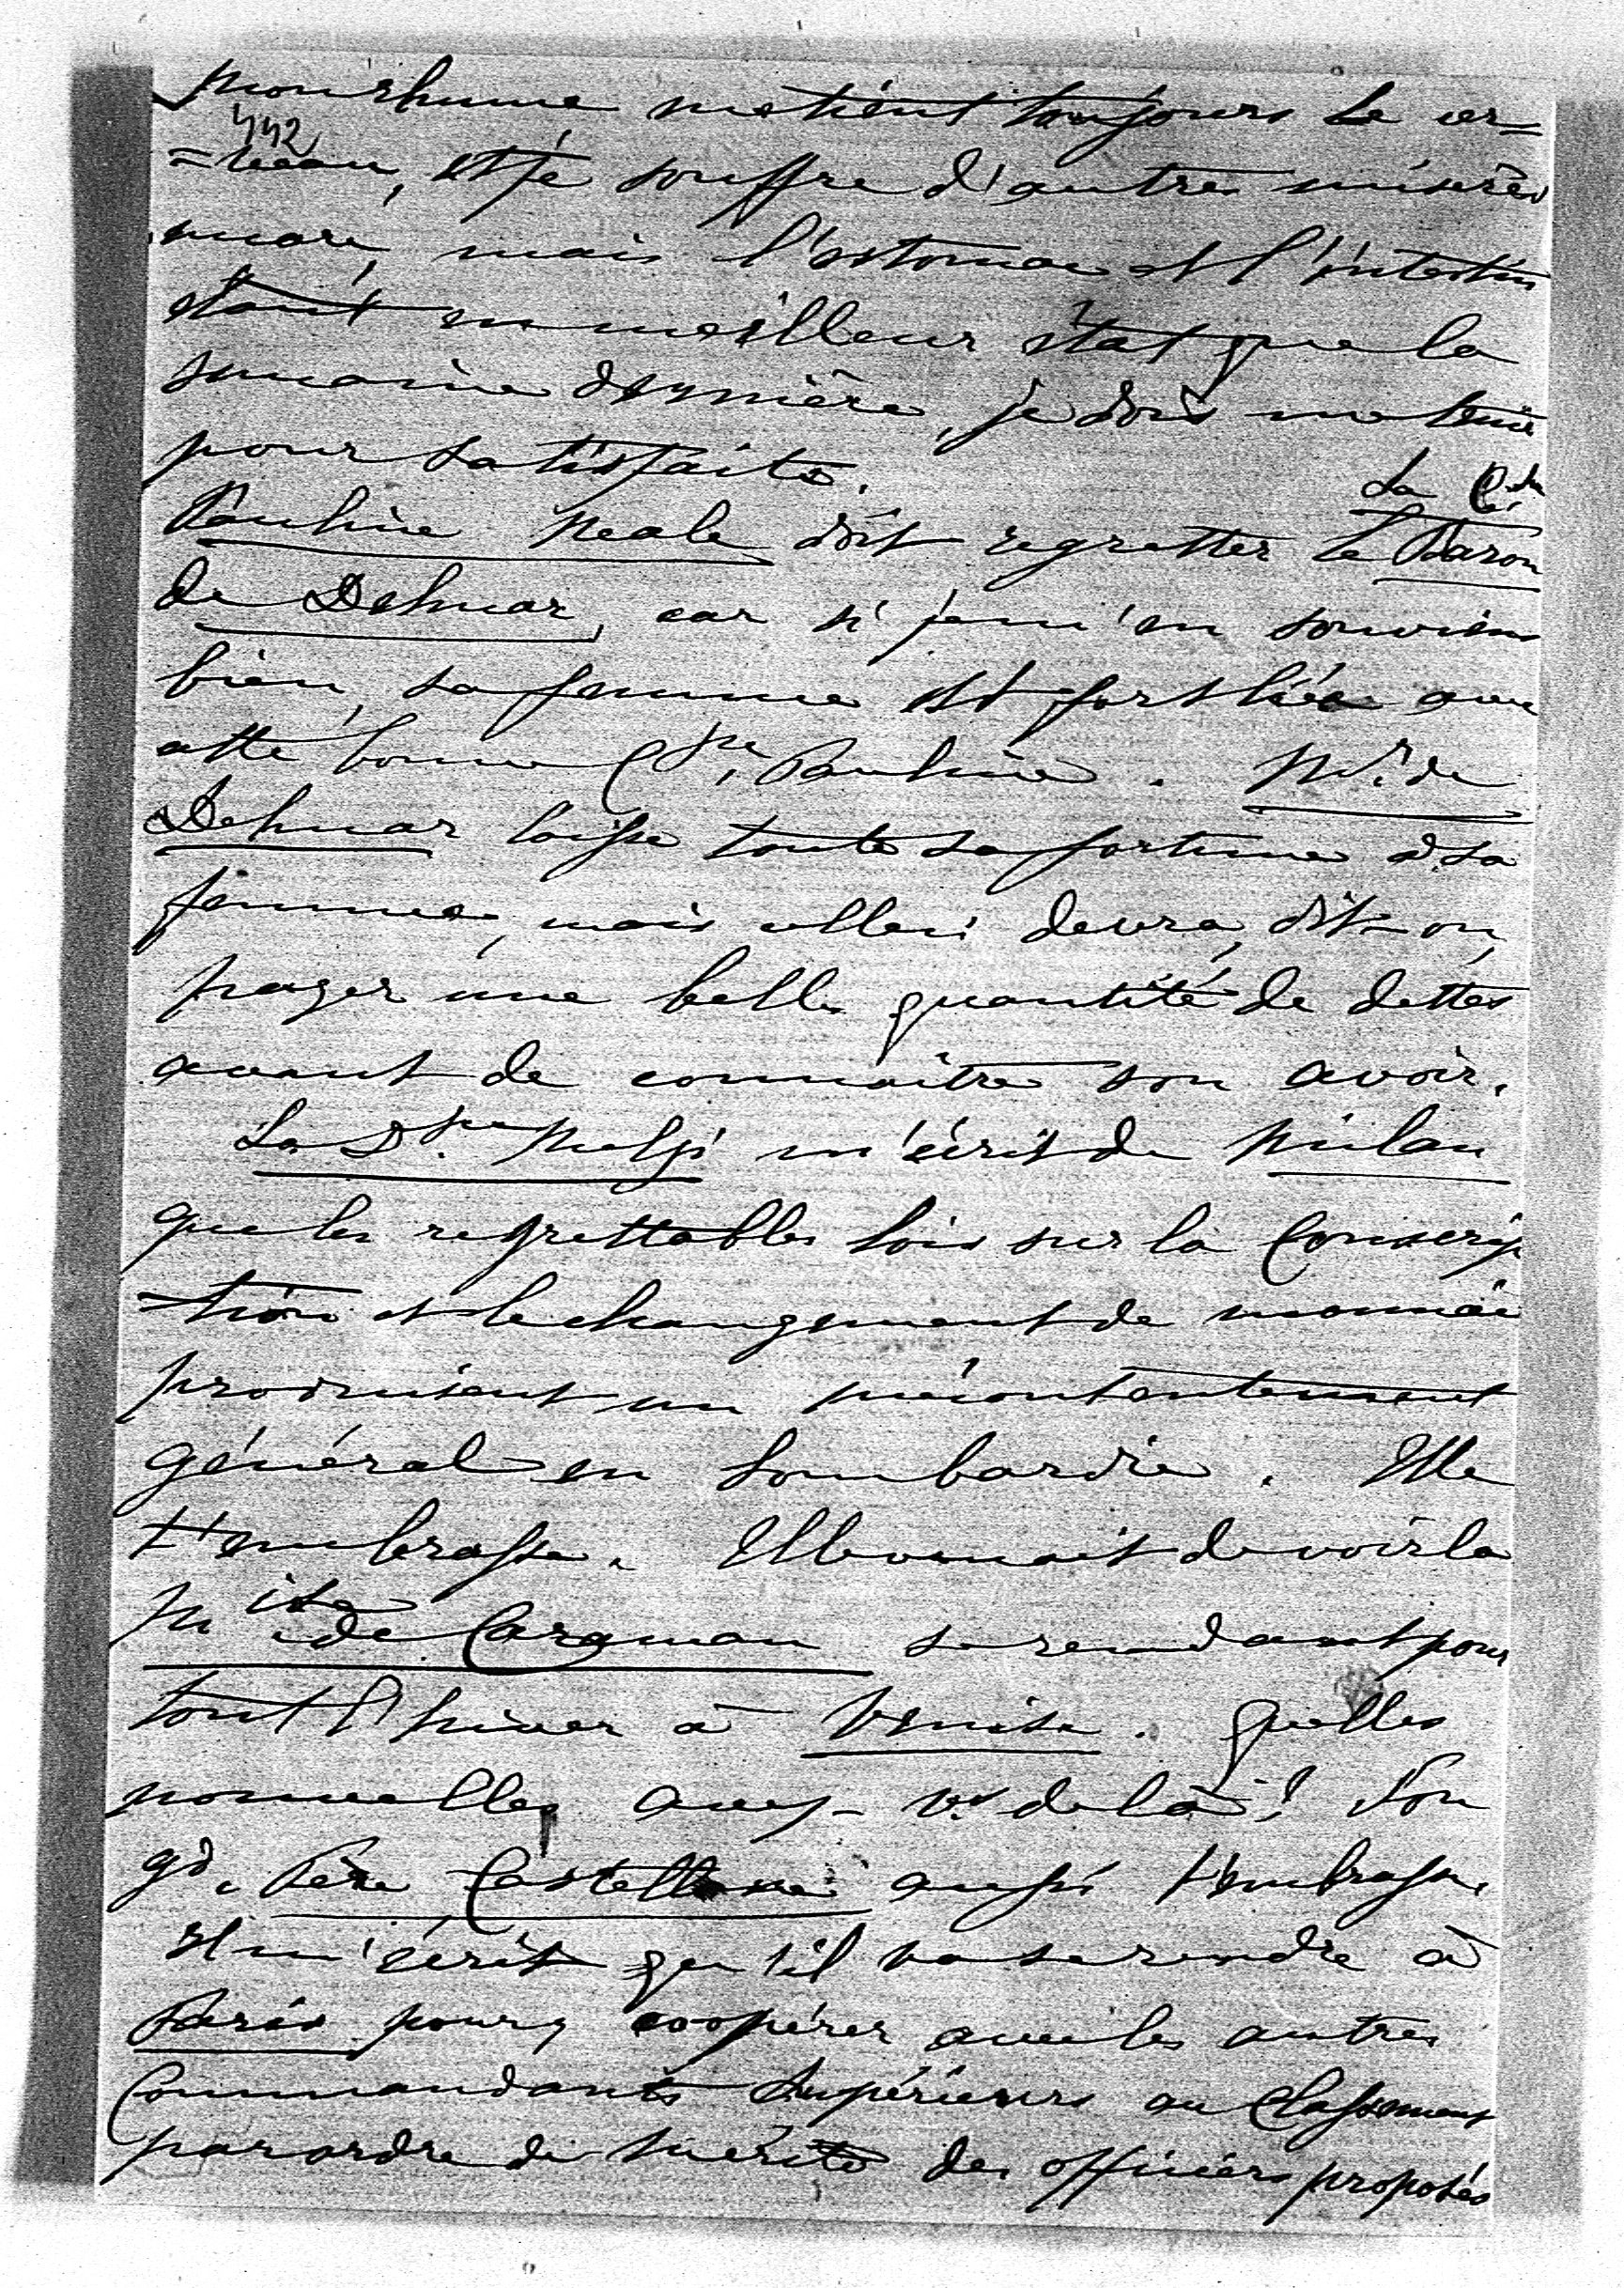 mon rhume me tient toujours le cer=
442
=veau, et je souffre d'autres misères
encore, mais l'estomac et l'intestin
étant en meilleur état que la
semaine dernière, je dois me tenir
pour satisfaite.
La Ctesse
Pauline Neale doit regretter le Baron
de Delmar, car si je m'en souviens
bien, sa femme est fort liée avec
cette bonne Ctsse Pauline. Mr. de
Delmar laisse toute sa fortune à sa
femme, mais celle ci devra, dit-on,
payer une belle quantité de dettes
avant de connaître son avoir.
La Dsse Melzi m'écrit de Milan
que les regrettables lois sur la Conscrip
tion et le changement de monnaie
produisent un mécontentement
général en Lombardie. Elle
t'embrasse. Elle venait de voir la
Mise de Caraman se rendant pour
tout l'hiver à Venise. Quelles
nouvelles avez-vs de là? Ton
gd. Père Castellane aussi t'embrasse.
Il m'écrit qu'il va se rendre à
Paris pour y coopérer avec les autres
Commandants Supérieurs au Classement
par ordre de mérite des officiers proposés